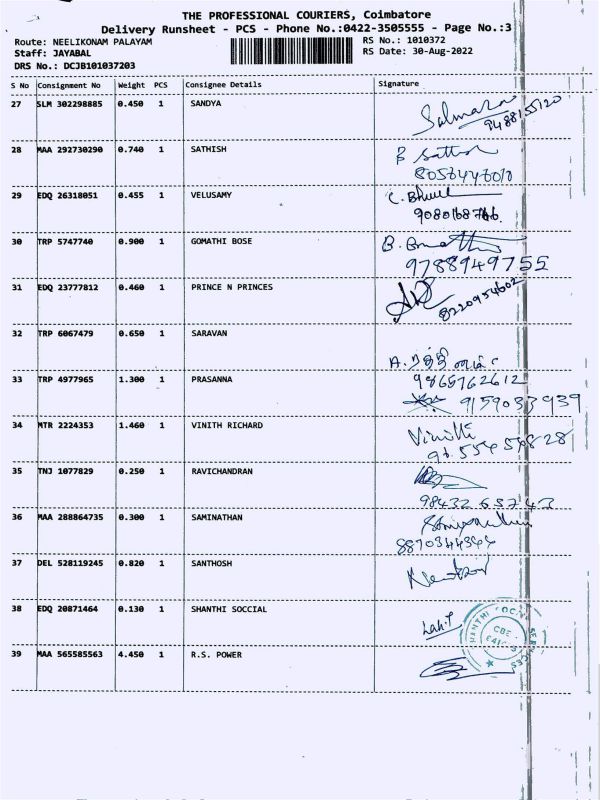 THE PROFESSIONAL COURIERS, Coimbatore
Delivery Runsheet - PCS - Phone No.:0422-3505555 - Page No.:3
Route: NEELIKONAM PALAYAM
RS No.: 1010372
Staff: JAYABAL
RS Date: 30-Aug-2022
DRS No.: DCJB101037203
S No Consignment No Weight PCS Consignee Details Signature
27 SLM 302298885 0.450 1 SANDYA
9488155120
28 MAA 292730290 0.740 1 SATHISH
29 EDQ 26318051 0.455 1 VELUSAMY
30 TRP 5747740 0.900 1 GOMATHI BOSE
9788949755
31 EDQ 23777812 0.460 1 PRINCE N PRINCES
8220954602
32 TRP 6067479 0.650 1 SARAVAN
33 TRP 4977965 1.300 1 PRASANNA
9865762612
9159033939
34 MTR 2224353 1.460 1 VINITH RICHARD
Vinith
35 TNJ 1077829 0.250 1 RAVICHANDRAN
36 MAA 288864735 0.300 1 SAMINATHAN
8870344344
37 DEL 528119245 0.820 1 SANTHOSH
38 EDQ 20871464 0.130 1 SHANTHI SOCCIAL
39 MAA 565585563 4.450 1 R.S. POWER